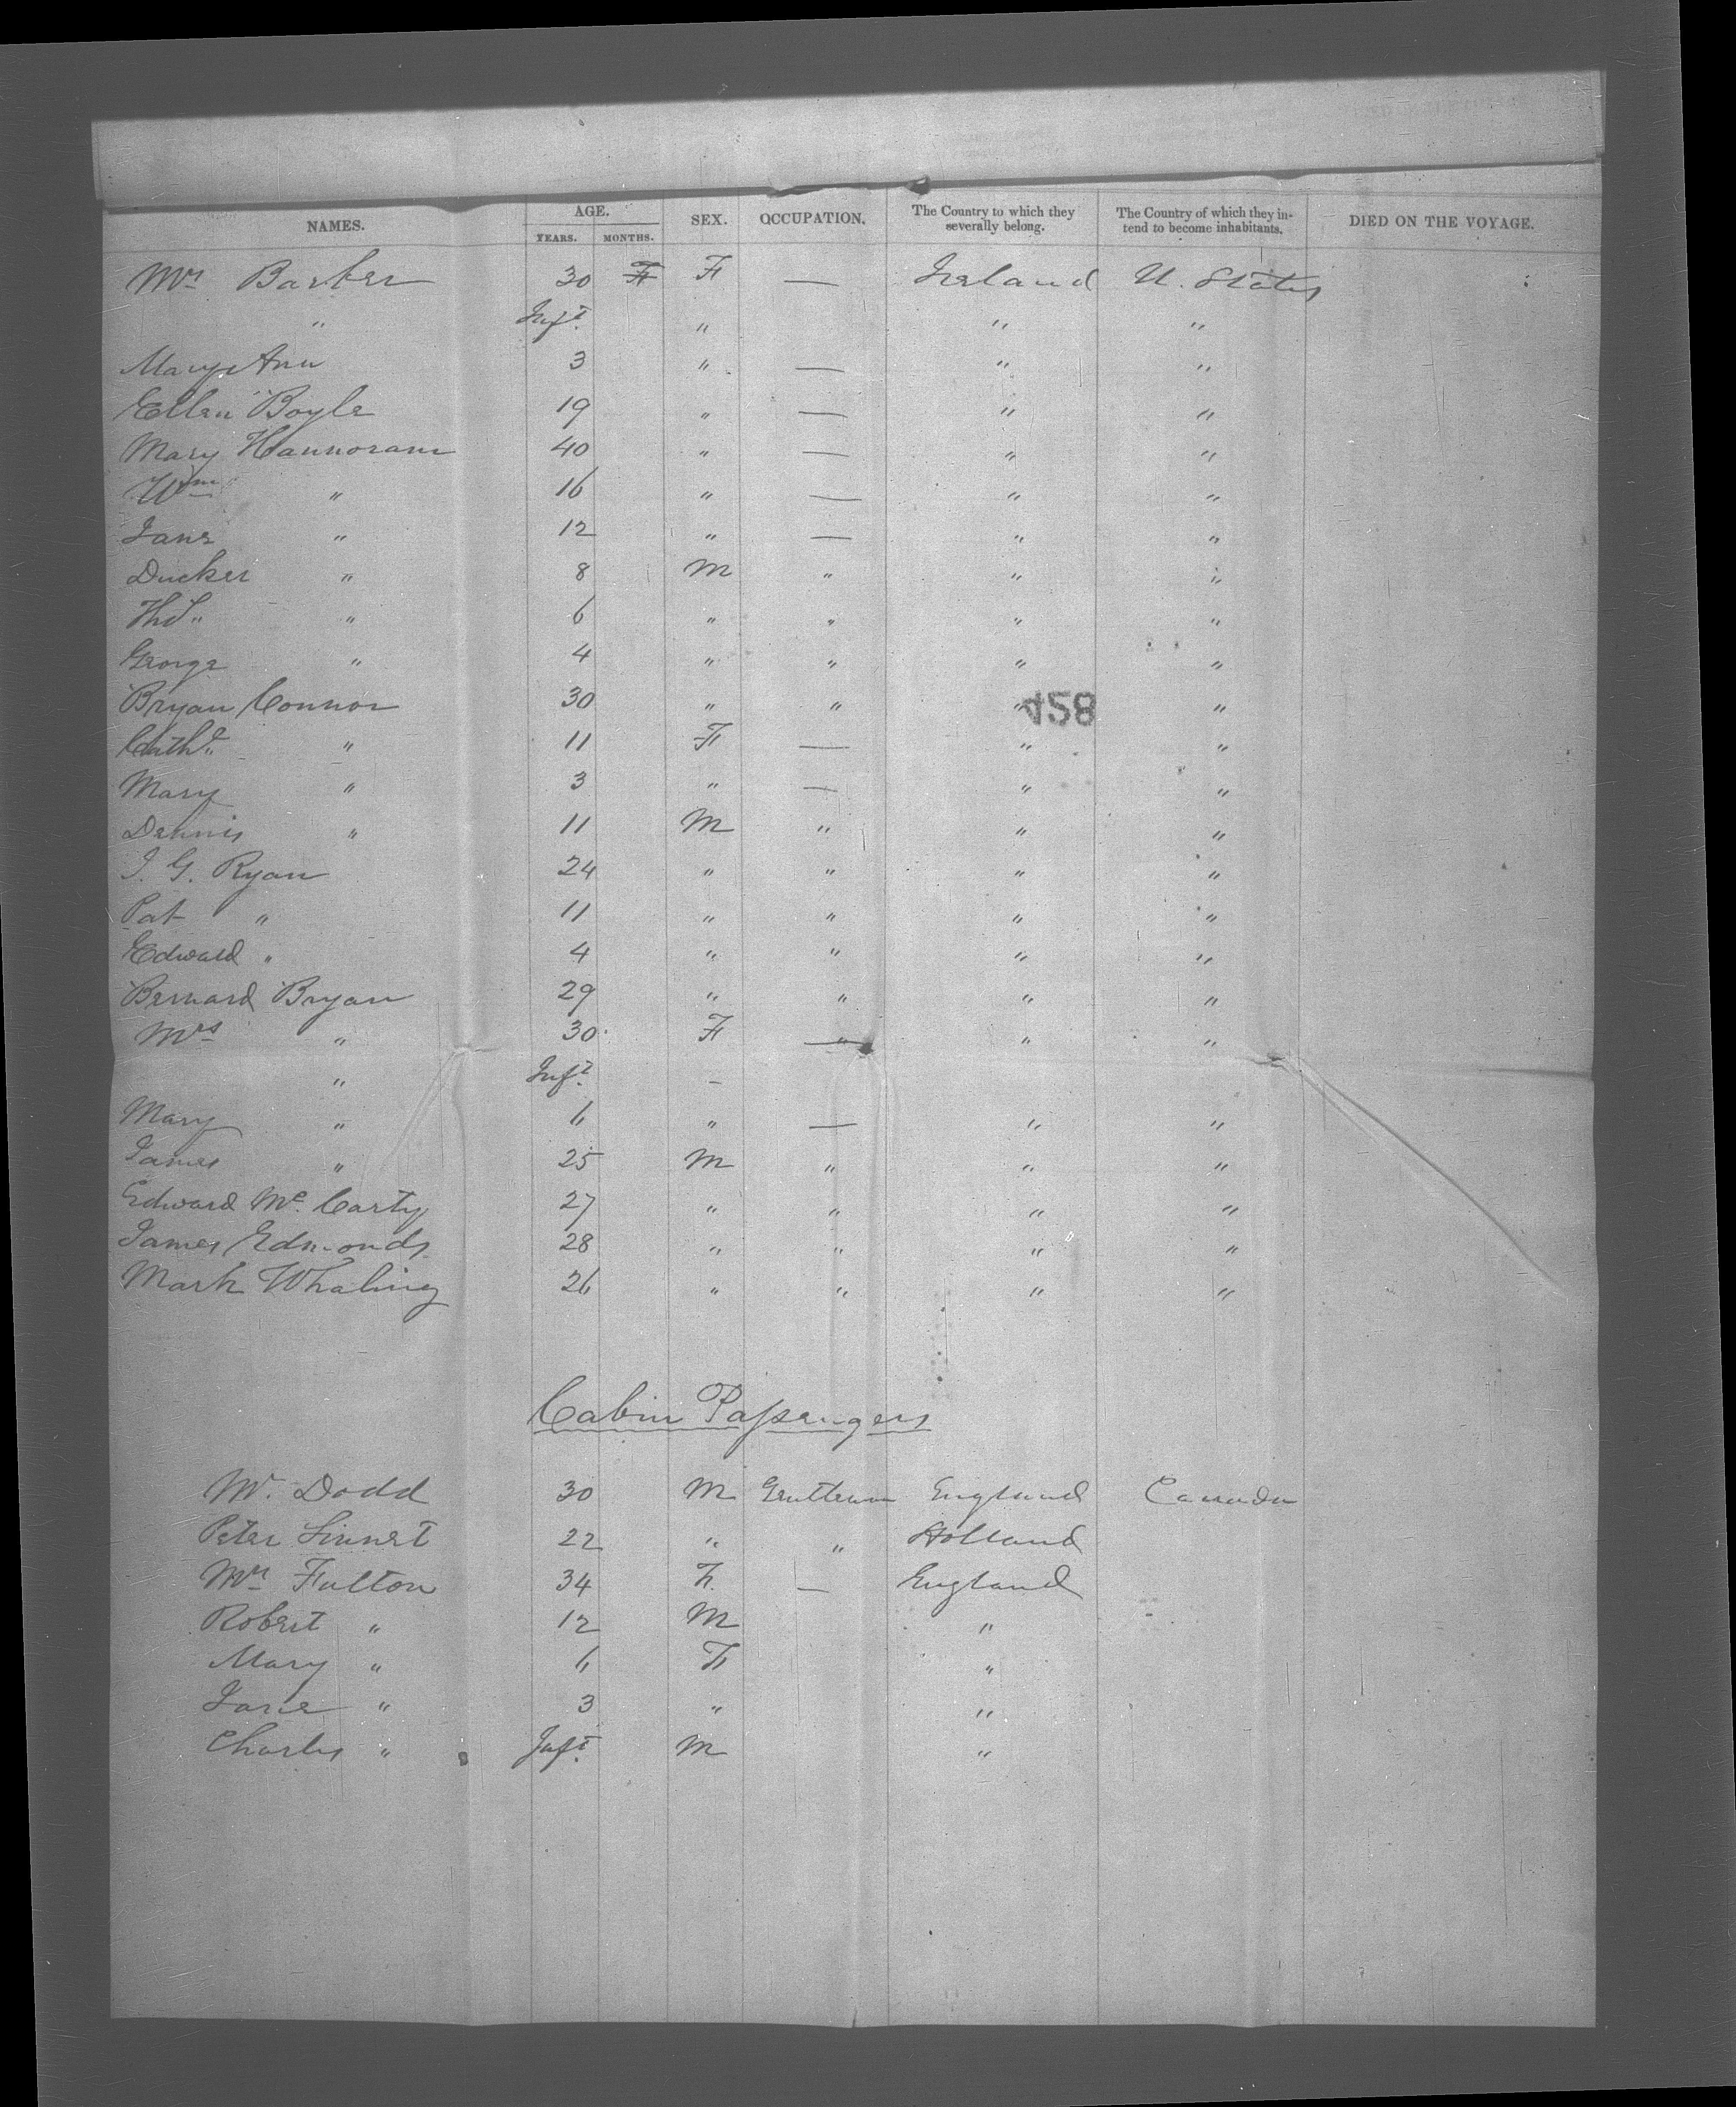 NAMES. AGE. YEARS. MONTHS. SEX. OCCUPATION. The Country to which they severally belong. The Country of which they intend to become inhabitants. DIED ON THE VOYAGE.
Mrs Barker 30 F — Ireland U. States
" Inft. " " "
Mary Ann 3 " — " "
Ellen Boyle 19 " — " "
Mary Hannoram 40 " — " "
Wm " 16 " — " "
Jane " 12 " — " "
Ducker " 8 M " " "
Thos " 6 " " " "
George " 4 " " " "
Bryan Connor 30 " " " "
458
Cathe " 11 F — " "
Mary " 3 " — " "
Dennis " 11 M " " "
J. G. Ryan 24 " " " "
Pat " 11 " " " "
Edward " 4 " " " "
Bernard Bryan 29 " " " "
Mrs " 30 F — " "
" Inft. –
Mary " 6 " — " "
James " 25 M " " "
Edward Mc. Carty 27 " " " "
James Edmonds 28 " " " "
Mark Whaling 26 " " " "
Cabin Passengers
Mr. Dodd 30 M Gentleman England Canada
Peter Linnet 22 " " Holland
Mrs Fulton 34 F. — England
Robert " 12 M "
Mary " 6 F "
Jane " 3 " "
Charles " Inft. M "